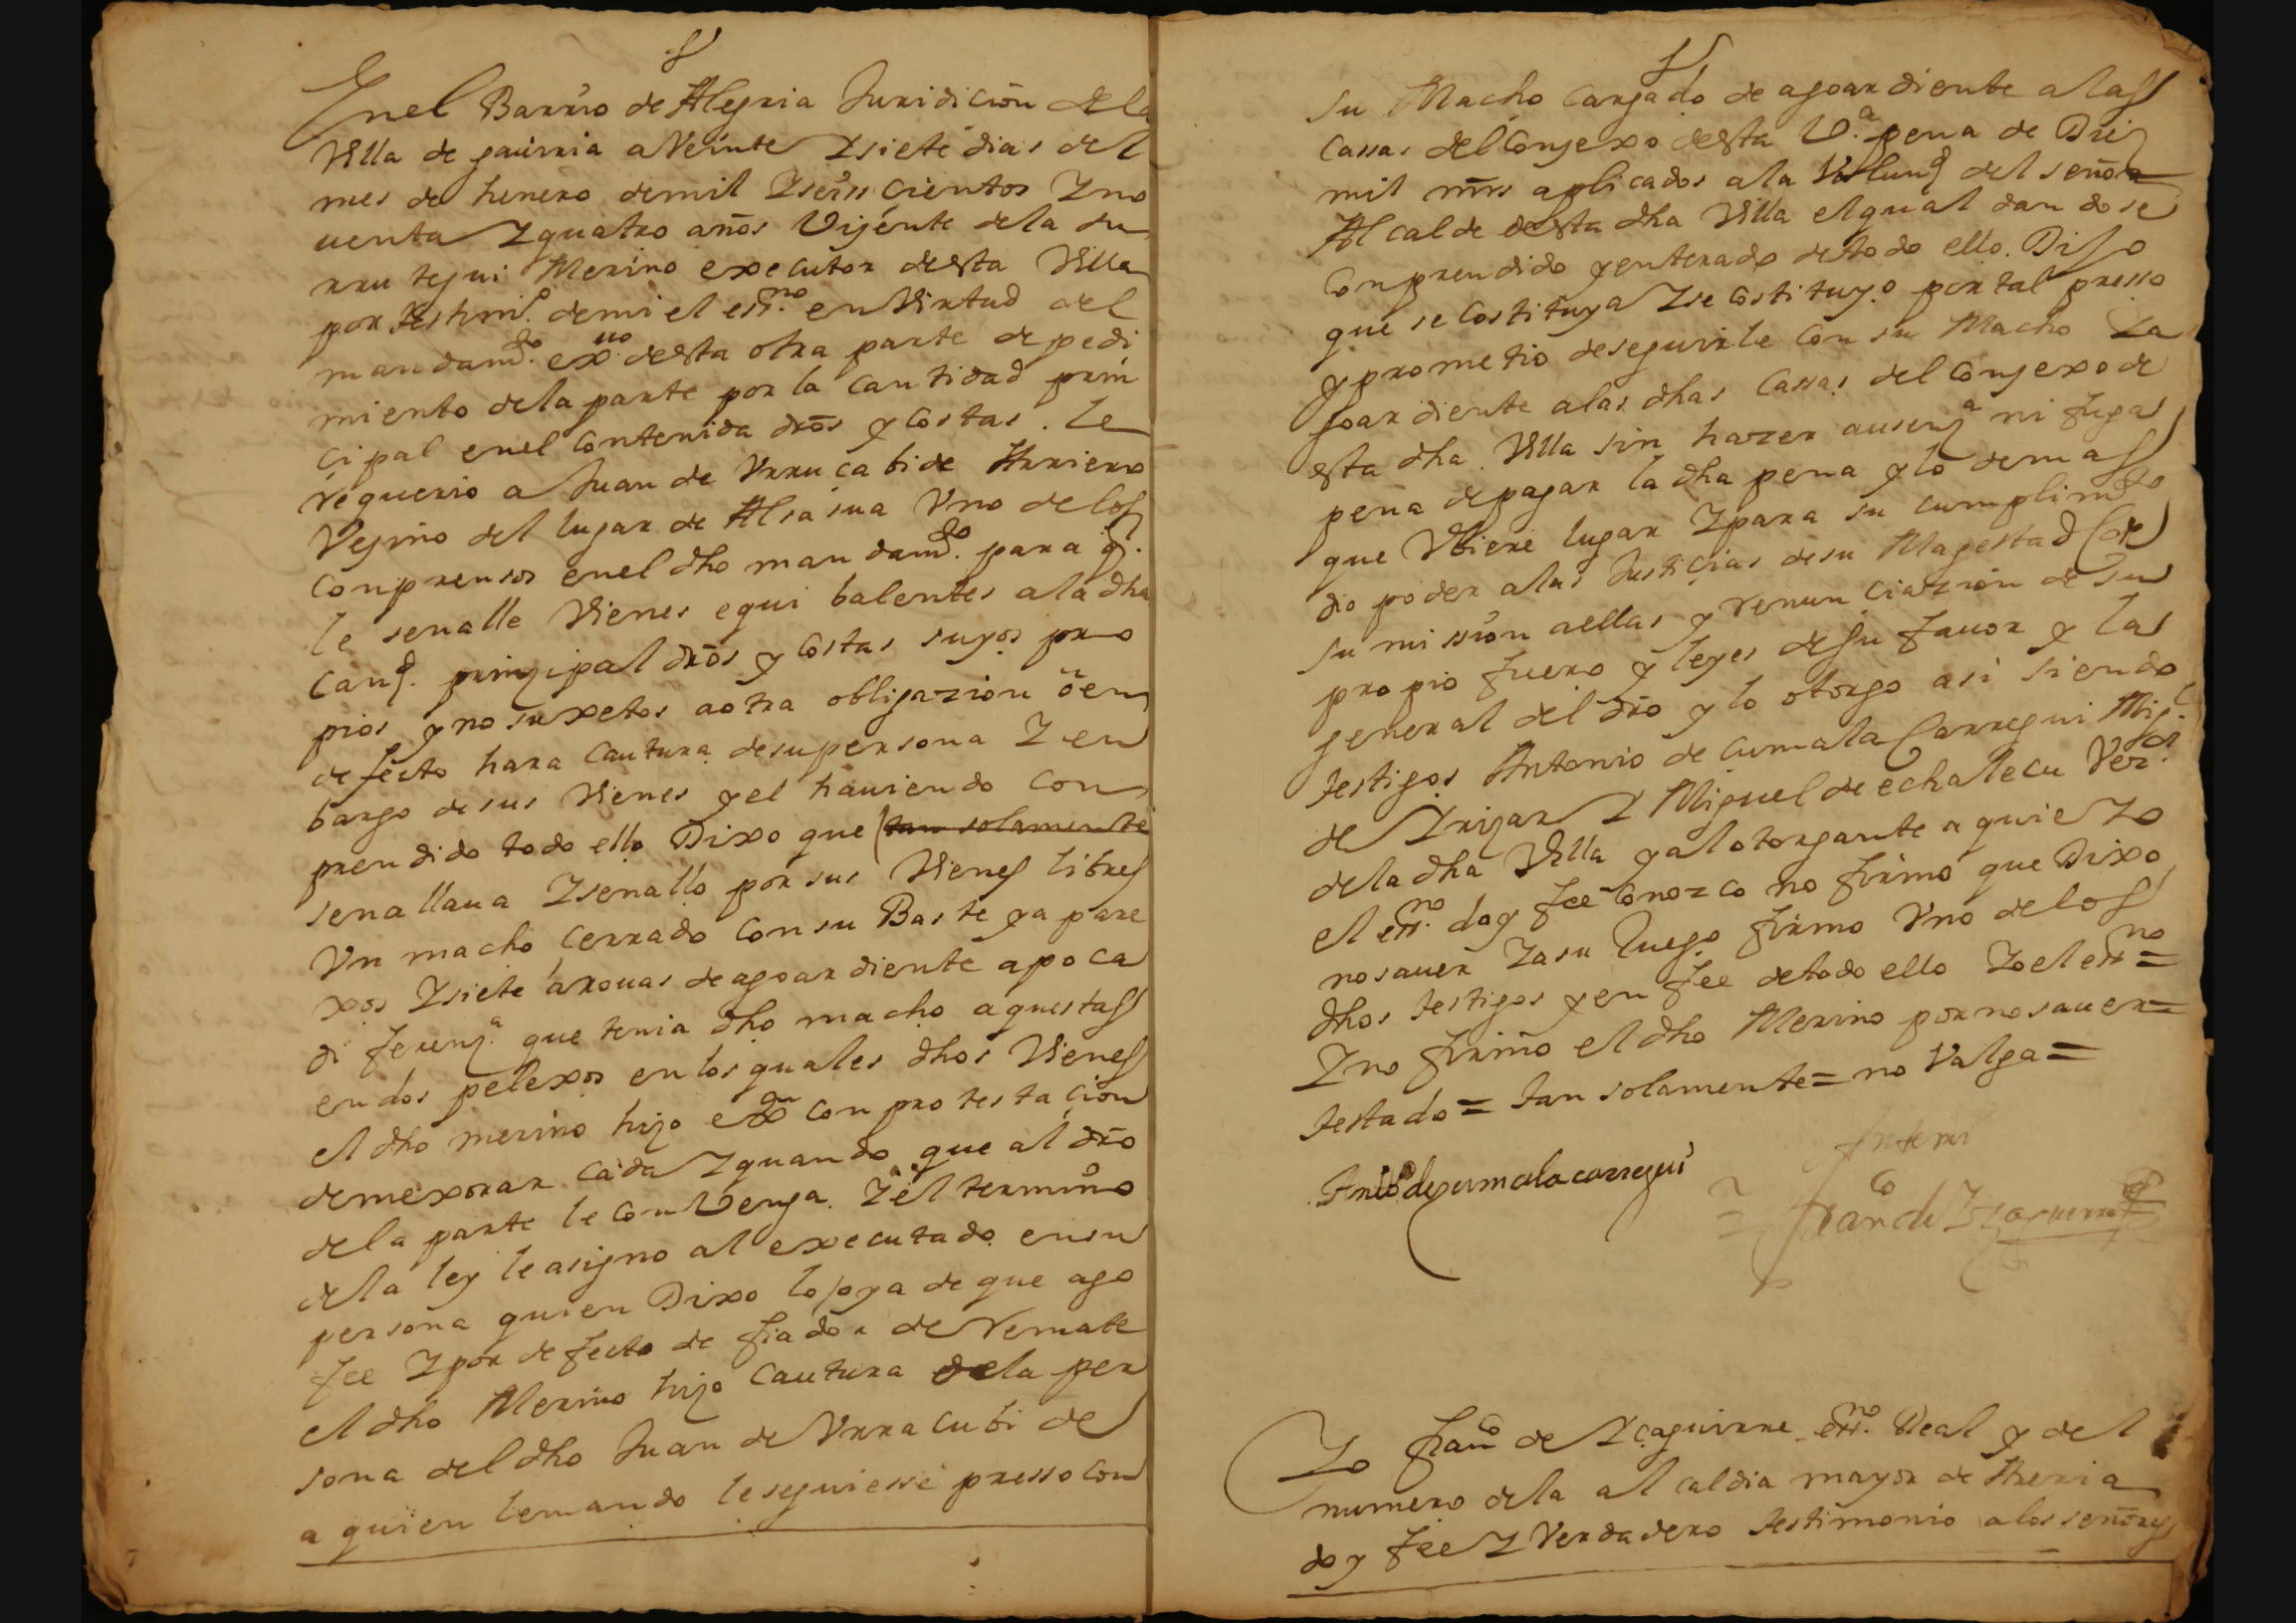 En el Barrio de Alegria Juridicion de la
Villa de gauiria a Veinte Y siete dias del
mes de henero de mil Y seiss cientos Y no
uenta Y quatro años Viçente de la su
rru tegui Merino executor desta Villa
por testim.º de mi el ess.no en Virtud del
mandam.to ex.uo desta otra parte de pedi
miento de la parte por la Cantidad prin
cipal en el Contenida drõs y Costas. le
requerio a Juan de Vrrucabide Arriero
Vezino del lugar de Alsasua Vno de los
Conprensos en el dho mandam.to para q.
le senalle Vienes equi balentes a la dha
Cant. prinzipal drõs y Costas suyos pro
pios y no suxetos a otra obligazion õ en
defecto hara Cautura de su persona Y en
bargo de sus Vienes y el hauiendo Con
prendido todo ello Dixo que tan solamente
senallaua Y senallo por sus Vienes libres
Vn macho Cerrado Con su Baste y a pare
xos Y siete arouas de agoardiente a poca
diferenz.a que tenia dho macho a questas
en dos pelexos en los quales dhos Vienes
el dho merino hizo ex.on Con protestacion
de mexorar Cada Y quando que al drõ
de la parte le Conbenga. Y el termino
de la ley le asigno al executado en su
persona quien Dixo lo oya de que ago
fee Y por defecto de fiador de Remate
el dho Merino hizo Cautura de la per
sona del dho Juan de Vrracubi de
a quien le mando le seguiesse presso con
su Macho Cargado de agoardiente a las
Cassas del Conzexo desta V.a pena de Diez
mil mrs aplicados a la Volunt del señor
Alcalde desta dha Villa el qual dandose
Conprendido y enterado de todo ello. Diso
que se Costituya Y se Costituyo por tal presso
y prometio de seguirle Con su Macho Y a
goardiente a las dhas Cassas del Conzexo de
esta dha Villa sin hazer ausenz.a ni fuga
pena de pagar la dha pena y lo demas
que Vbiere lugar Y para su Cumplim.to
dio poder a las Justicias de su Magestad Con
su mission a ellas y renunciazion de su
propio fuero y leyes de su fauor y las
general del drõ y lo otorgo asi siendo
testigos Antonio de Cumalacarregui Mig.l
de Yrizar Y Miguel de echalecu Vez.os
de la dha Villa y al otorgante a quie Yo
el ess.no doy fee Conozco no firmo que Dixo
no sauer Y a su Ruego firmo Vno de los
dhos testigos y en fee de todo ello Yo el ess.no =
Y no firmo el dho Merino por no sauer =
testado = tan solamente = no Valga =
Ante mi
Antº de zumalacarregui
Fran.co de Yçaguirre
Yo Fran.co de Yçaguirre ess.no Real y del
numero de la alcaldia mayor de Areria
doy fee Y Verdadero testimonio a los señores